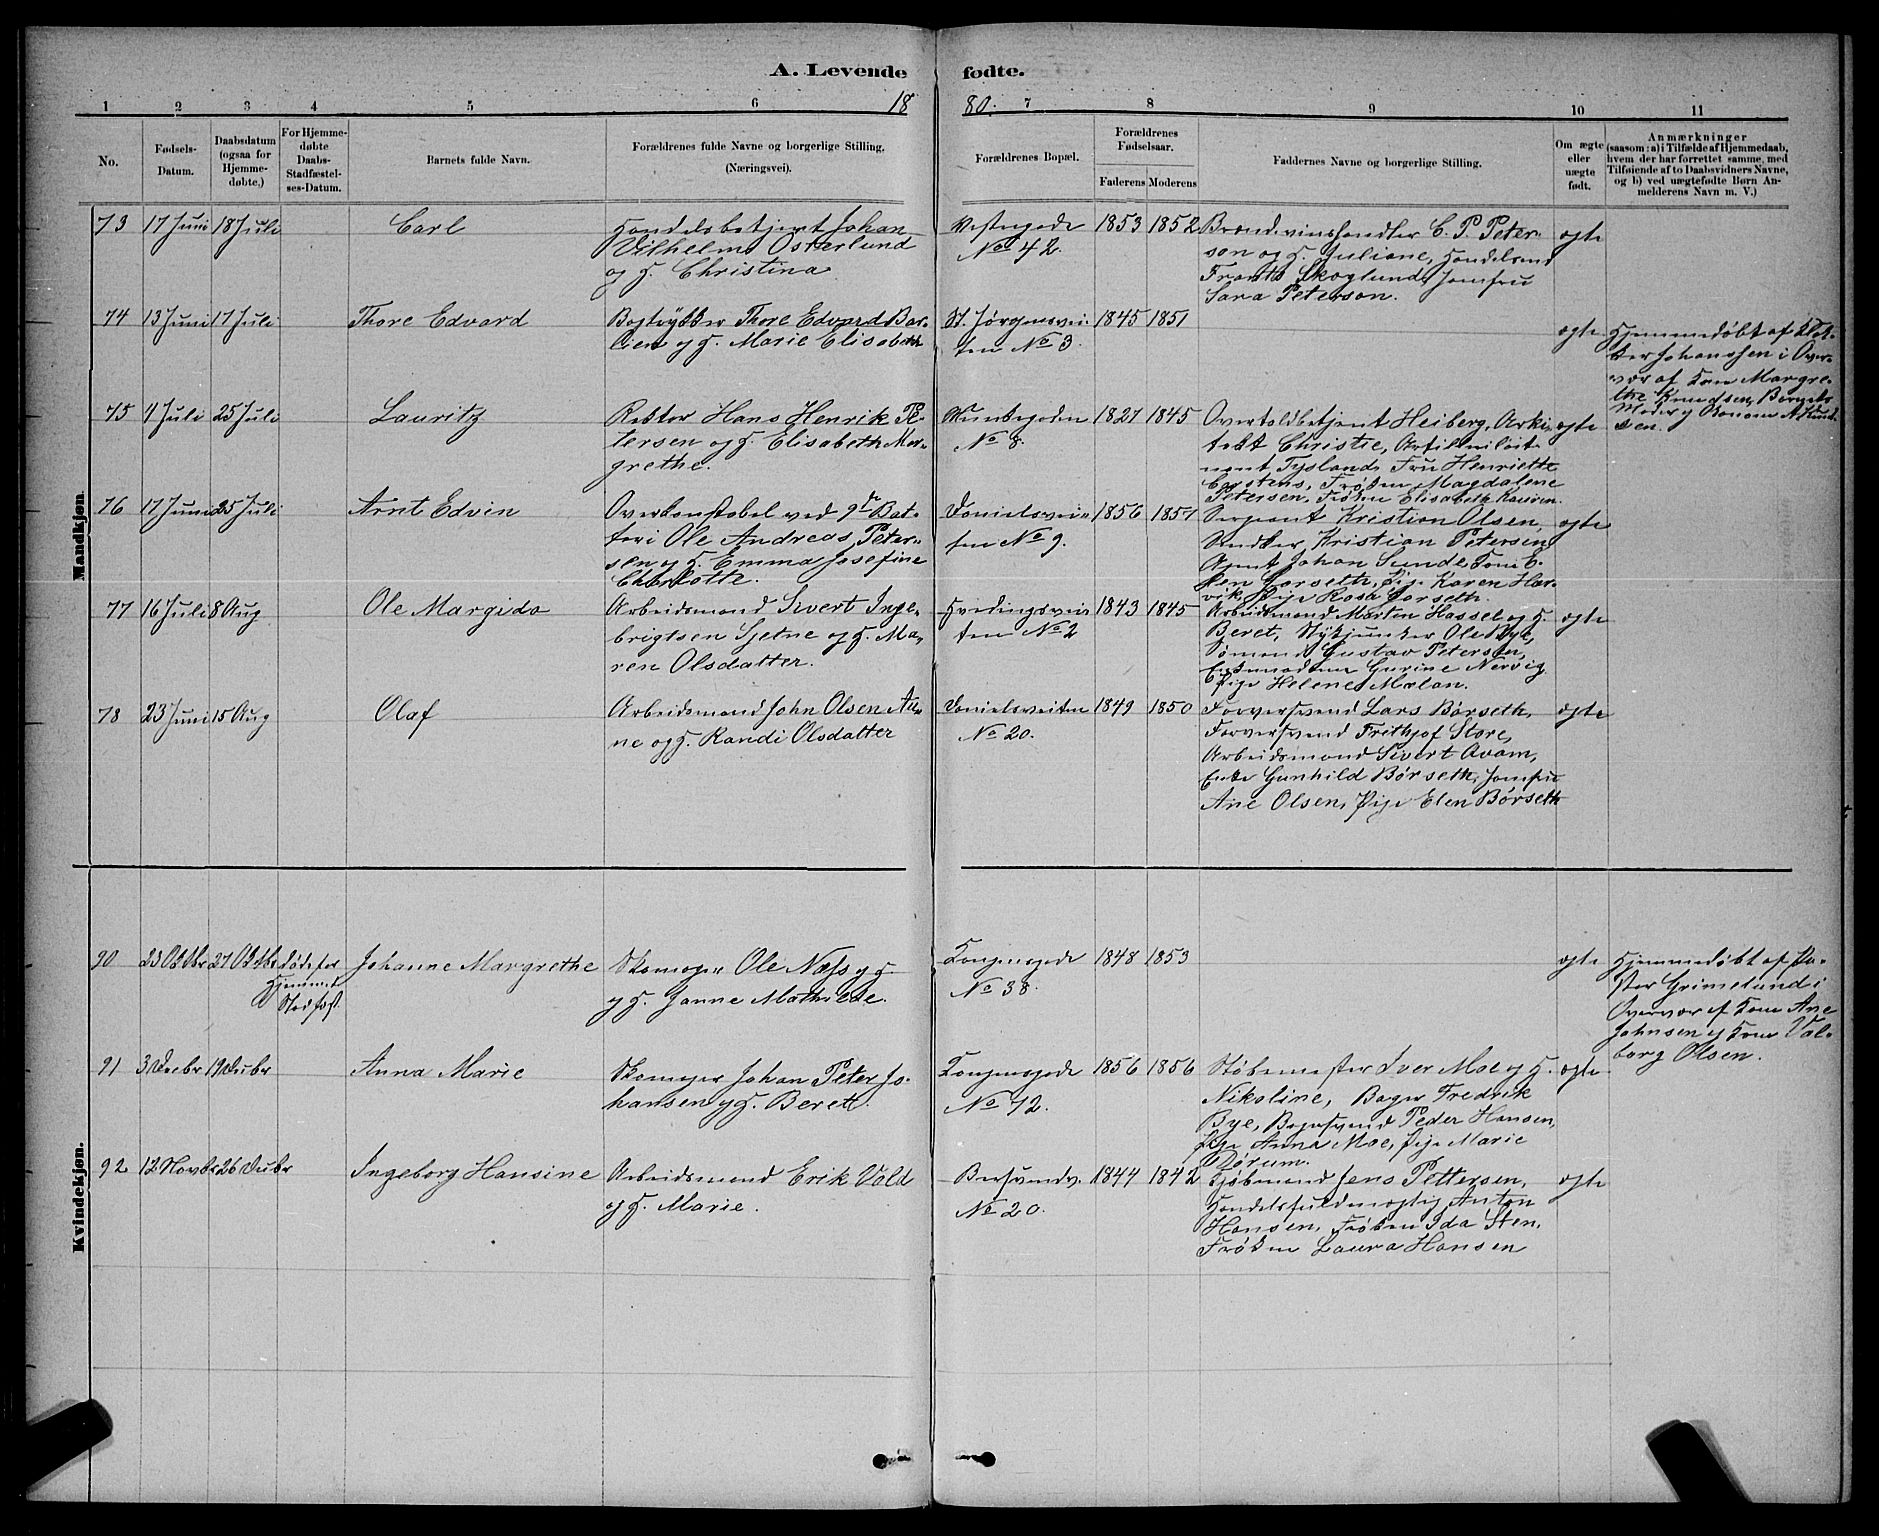 A. Levende fødte.
1 2 3 4 5 6 18 80. 7 8 9 10 11
No.
Fødsels-
Datum.
Daabsdatum
(ogsaa for
Hjemme-
døbte,)
For Hjemme-
døbte
Daabs-
Stadfæstel-
ses-Datum.
Barnets fulde Navn.
Forældrenes fulde Navne og borgerlige Stilling.
(Næringsvei).
Forældrenes Bopæl.
Forældrenes
Fødselsaar.
Faderens Moderens
Faddernes Navne og borgerlige Stilling.
Om ægte
eller
uægte
født.
Anmærkninger
(saasom: a) i Tilfælde af Hjemmedaab,
hvem der har forrettet samme, med
Tilføiende af to Daabsvidners Navne,
og b) ved uægtefødte Børn An-
melderens Navn m. V.)
Mandkjøn.
73 17 Juni 18 Juli
Carl
Handelsbetjent Johan
Vilhelm Österlund
og H. Christina
Vestregade
No 42.
1853 1852
Brændevinshandler C. P. Peter-
son og H. Juliane, Handelsmd
Frants Skoglund, Jomfru
Sara Peterson.
ægte
74 13 Juni 17 Juli
Thore Edvard
Bogtrykker Thore Edvard
og H. Marie Elisabeth
St. Jørgensvei-
ten No 3.
1845 1851
ægte
Hjemmedøbt af
Johanssen i Over-
vær af Kone Margre-
the Knudsen, Barnets
Moder
75 1 Juli 25 Juli
Lauritz
Rektor Hans Henrik Pe-
tersen og H. Elisabeth Mar-
grethe.
Munkegaden
No 8.
1827 1845
Overtoldbetjent Heiberg, Arki-
tekt Christie, Artilleriløit-
nant Tysland, Fru Henriette
Carstens, Frøken Magdalene
Petersen, Frøken Elisabeth
ægte
76 17 Juni 25 Juli
Arnt Edvin
Overkonstabel ved 9de Bat-
teri Ole Andreas Peter-
sen og H. Emma Josefine
Charlotte.
Danielsvei-
ten No 9.
1856 1857
Sergeant Kristian Olsen,
Snedker Kristian Petersen
Agent Johan Sunde, Kone E-
len Garseth, Pige Karen Har-
vik, Pige Rosa Garseth.
ægte
77 16 Juli 8 Aug
Ole Margido
Arbeidsmand Sivert Inge-
brigtsen Sjetne og H. Ma-
ren Olsdatter.
Hvedingsvei-
ten No 2
1843 1845
Arbeidsmand Morten Hassel og H.
Beret, Stykjunker Ole Bye,
Sømand Gustav Petersen,
Gurine Nervig
Pige Helene Mælan.
ægte
78 23 Juni 15 Aug
Olaf
Arbeidsmand John Olsen Au-
ne og H. Randi Olsdatter
Danielsveiten
No 20.
1849 1850
Farversvend Lars Børseth,
Farversvend Frithjof Støre,
Arbeidsmand Sivert Avam,
Enke Gunhild Børseth, Jomfru
Ane Olsen, Pige Elen Børseth
ægte
Kvindekjøn.
90 23 Oktbr 27 Oktbr
Død før
Hjemmed.
Stadfæst.
Johanne Margrethe
Skomager Ole Næss og H.
og H. Janne Mathilde.
Kongensgade
No 38.
1848 1853
ægte
Hjemmedøbt af Pa-
stor Grimelund i
Overvær af Kone Ane
Johnsen og Kone Val-
borg Olsen.
91 3 Decbr 19 Decbr
Anna Marie
Skomager Johan Peter Jo-
hansen og H. Beret.
Kongensgade
No 72.
1856 1856
Støbemester Iver Moe og H.
Nikoline, Bager Fredrik
Bye, Bagersvend Peder Hansen,
Pige Anna Moe, Pige Marie
Børum.
ægte
92 12 Novbr 26 Decbr
Ingeborg Hansine
Arbeidsmand Erik Vold
og H. Marie.
No 20.
1844 1842
Kjøbmand Jens Pettersen,
Handelsfuldmægtig Anton
Hansen, Frøken Ida Sten,
Frøken Laura Hansen
ægte